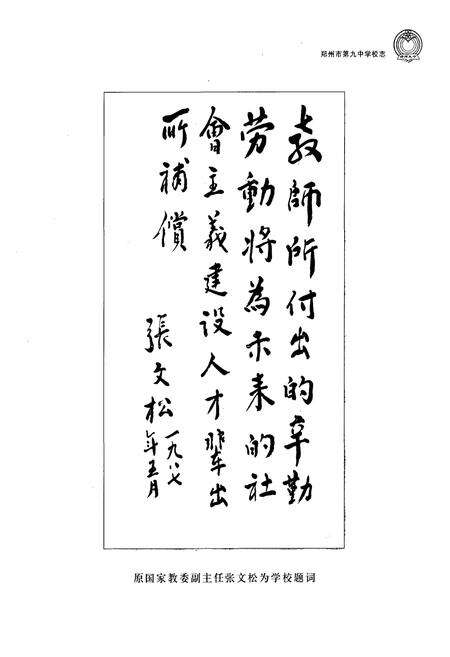 郑州市第九中学校志
教師所付出的辛勤
劳動將為未来的社
會主義建设人才輩出
所補償
張文松
一九八七
年五月
原国家教委副主任张文松为学校题词